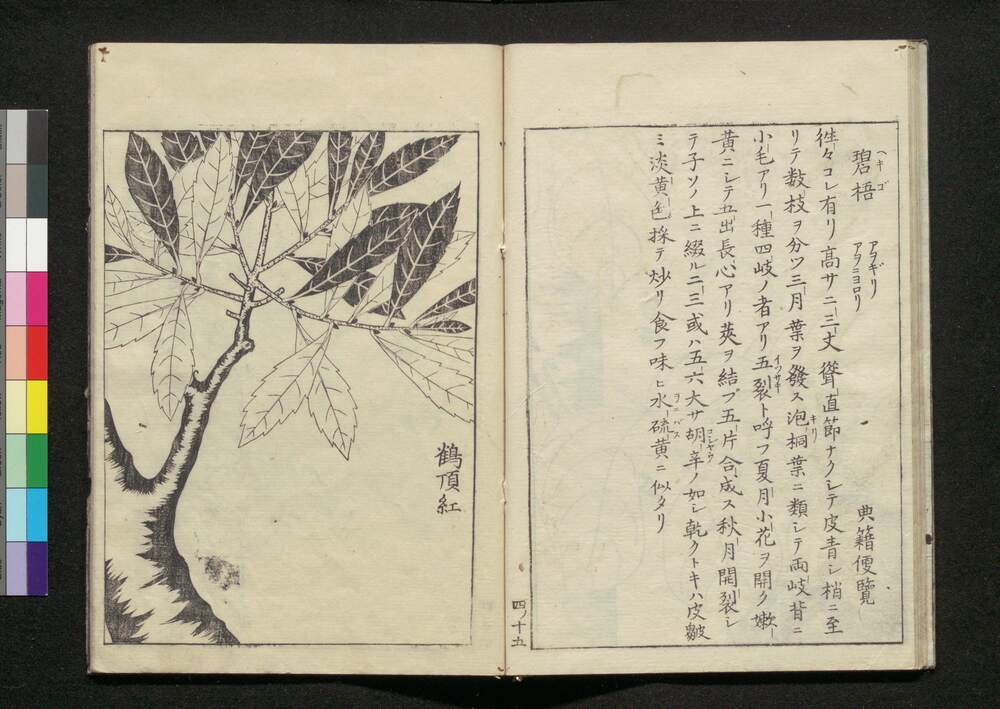 碧梧 ヘキゴ アヲギリ アヲニヨロリ 典籍便覽
徃々コレ有リ高サ二三丈聳直節ナクシテ皮青シ梢ニ至
リテ数枝ヲ分ツ三月葉ヲ發ス泡桐葉ニ類シテ両岐背ニ
小毛アリ一種四岐ノ者アリ五裂ト呼フ夏月小花ヲ開ク嫩
黄ニシテ五出長心アリ莢ヲ結プ五片合成ス秋月開裂シ
テ子ソノ上ニ綴ル二三或ハ五六大サ胡辛ノ如シ乾クトキハ皮皺
ミ淡黄色採テ炒リ食フ味ヒ水硫黄ニ似タリ
四ノ十五
鶴頂紅